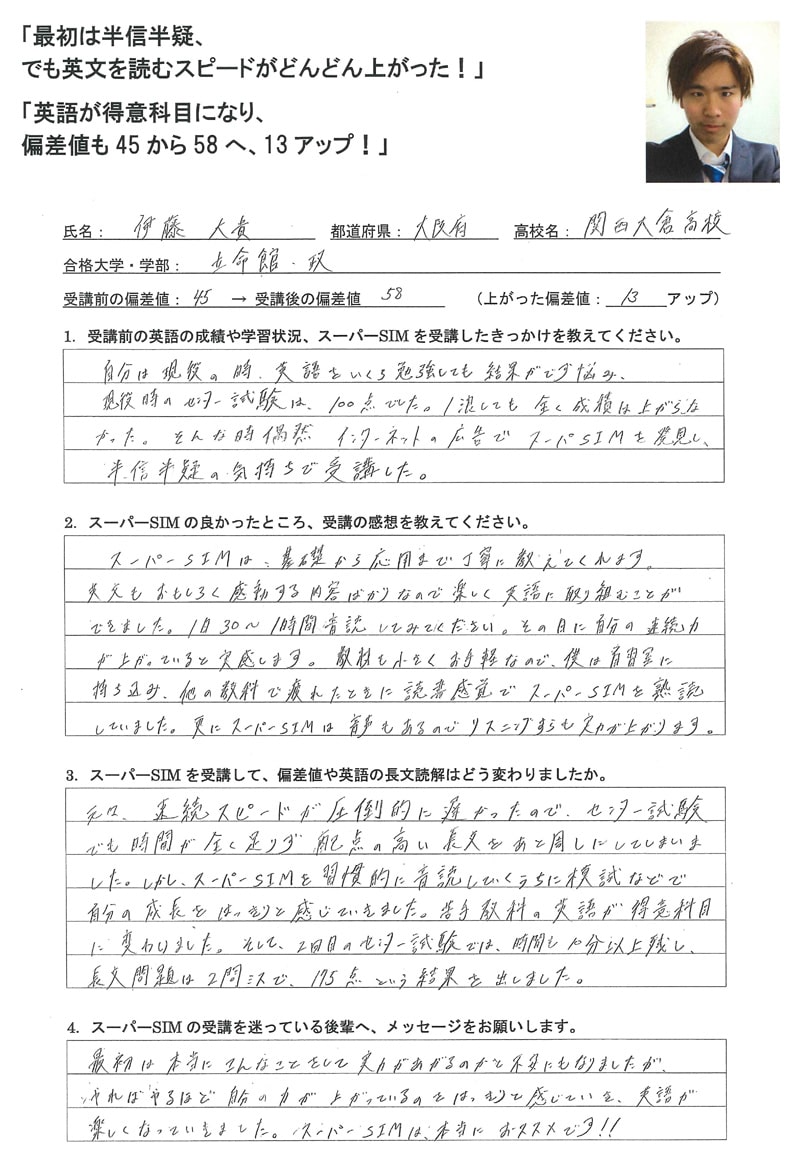 「最初は半信半疑、
でも英文を読むスピードがどんどん上がった！」
「英語が得意科目になり、
偏差値も45から58へ、13アップ！」
氏名： 伊藤 大貴 都道府県： 大阪府 高校名： 関西大倉高校
合格大学・学部： 立命館・政
受講前の偏差値： 45 → 受講後の偏差値 58 （上がった偏差値： 13 アップ）
1. 受講前の英語の成績や学習状況、スーパーSIMを受講したきっかけを教えてください。
自分は現役の時、英語をいくら勉強しても結果がでず悩み、
現役時のセンター試験は、100点でした。1浪しても全く成積は上がらな
かった。そんな時偶然 インターネットの広告で スーパSIMを発見し、
半信半疑の気持ちで受講した。
2. スーパーSIMの良かったところ、受講の感想を教えてください。
スーパーSIMは、基礎から応用まで丁寧に教えてくれます。
英文もおもしろく感動する内容ばかりなので楽しく英語に取り組むことが
できました。1日30〜1時間音読してみてください。その日に自分の速読力
が上がっていると実感します。教材も小さくお手軽なので、僕は自習室に
持ち込み、他の教科で疲れたときに読書感覚でスーパーSIMを熟読
していました。更にスーパーSIMは音声もあるのでリスニングすらも実力が上がります。
3. スーパーSIMを受講して、偏差値や英語の長文読解はどう変わりましたか。
元々、速読スピードが圧倒的に遅かったので、センター試験
でも時間が全く足りず配点の高い長文をあと周しにしてしまいま
した。しかし、スーパーSIMを習慣的に音読していくうちに模試などで
自分の成長をはっきりと感じていきました。苦手教科の英語が得意科目
に変わりました。そして、2回目のセンター試験では、時間も10分以上残し、
長文問題は2問ミスで、175点という結果を出しました。
4. スーパーSIMの受講を迷っている後輩へ、メッセージをお願いします。
最初は本当にこんなことをして実力があがるのかと不安にもなりましたが、
やればやるほど自分の力が上がっているのをはっきりと感じていき、英語が
楽しくなっていきました。スーパーSIMは、本当におススメです!!